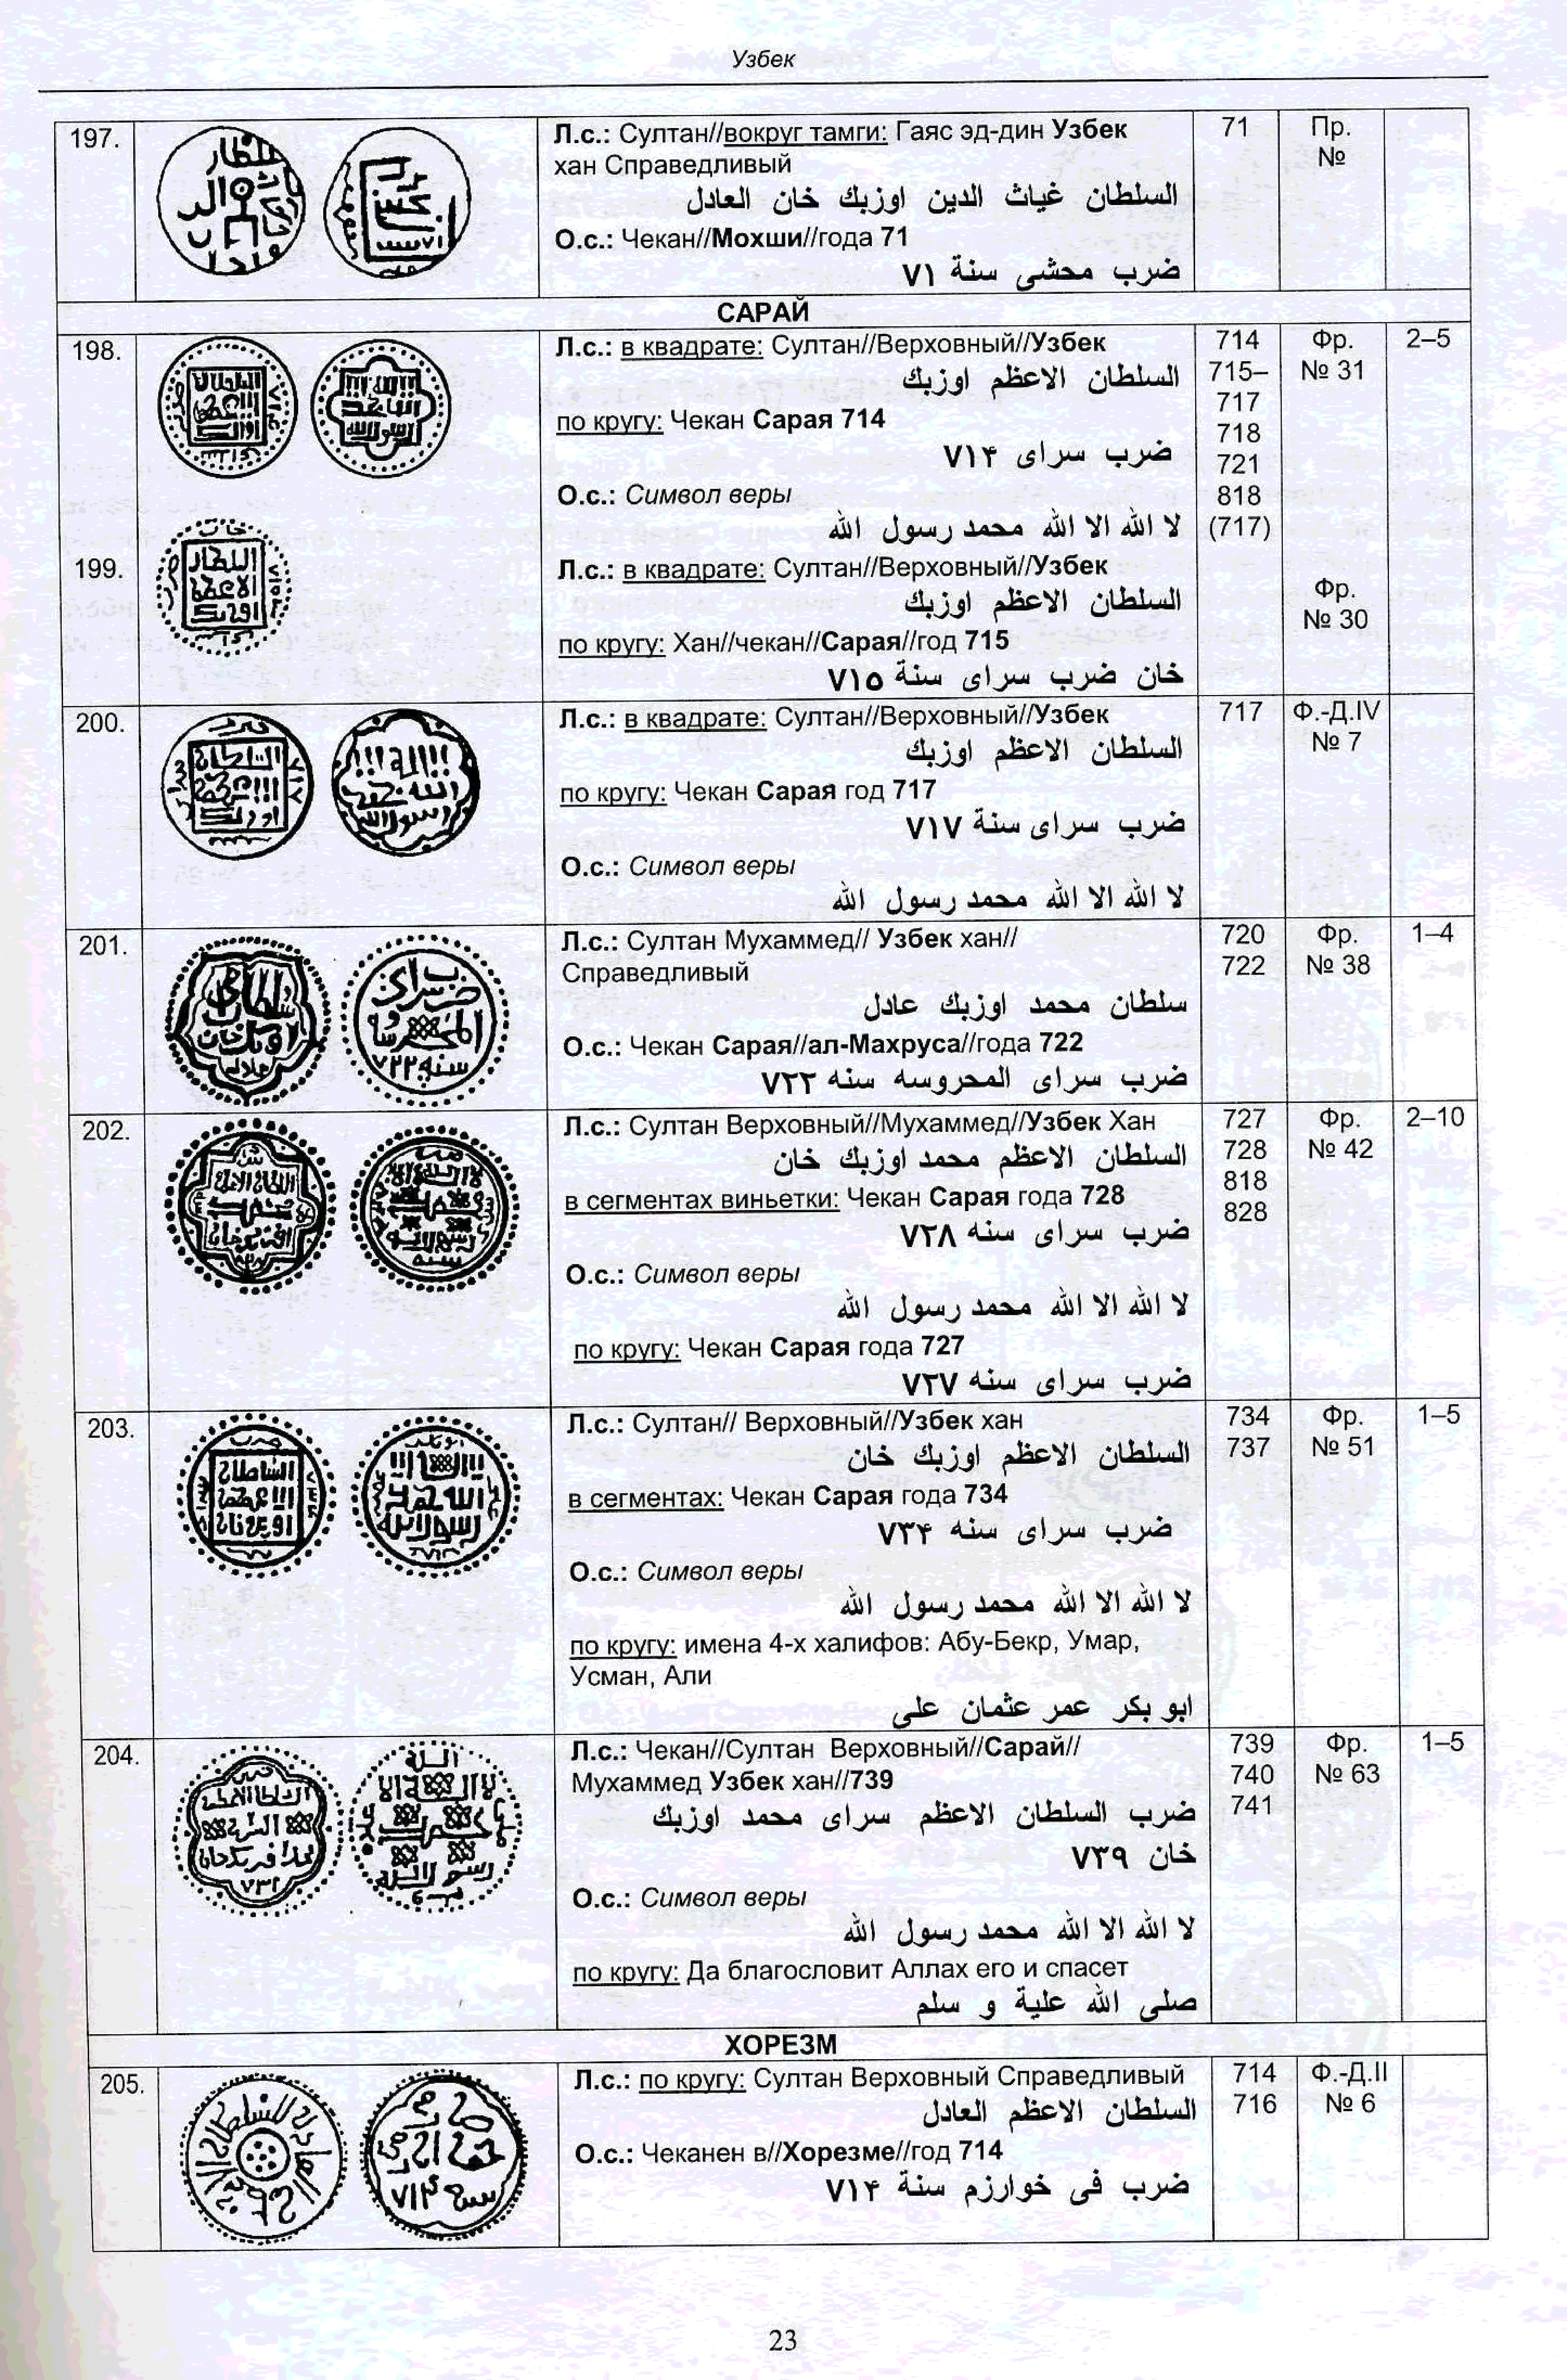 Узбек
197.
Л.с.: Султан//вокруг тамги: Гаяс эд-дин Узбек
хан Справедливый
السلطان غياث الدين اوزبك خان العادل
О.с.: Чекан//Мохши//года 71
ضرب محشى سنة ٧١
71
Пр.
№
САРАЙ
198.
Л.с.: в квадрате: Султан//Верховный//Узбек
السلطان الاعظم اوزبك
по кругу: Чекан Сарая 714
ضرب سراى ٧١۴
О.с.: Символ веры
لا الله الا الله محمد رسول الله
714
715–
717
718
721
818
(717)
Фр.
№ 31
2–5
199.
Л.с.: в квадрате: Султан//Верховный//Узбек
السلطان الاعظم اوزبك
по кругу: Хан//чекан//Сарая//год 715
خان ضرب سراى سنة ٧١٥
Фр.
№ 30
200.
Л.с.: в квадрате: Султан//Верховный//Узбек
السلطان الاعظم اوزبك
по кругу: Чекан Сарая год 717
ضرب سراى سنة ٧١٧
О.с.: Символ веры
لا الله الا الله محمد رسول الله
717
Ф.-Д.IV
№ 7
201.
Л.с.: Султан Мухаммед// Узбек хан//
Справедливый
سلطان محمد اوزبك عادل
О.с.: Чекан Сарая//ал-Махруса//года 722
ضرب سراى المحروسه سنه ٧٢٢
720
722
Фр.
№ 38
1–4
202.
Л.с.: Султан Верховный//Мухаммед//Узбек Хан
السلطان الاعظم محمد اوزبك خان
в сегментах виньетки: Чекан Сарая года 728
ضرب سراى سنه ٧٢٨
О.с.: Символ веры
لا الله الا الله محمد رسول الله
по кругу: Чекан Сарая года 727
ضرب سراى سنه ٧٢٧
727
728
818
828
Фр.
№ 42
2–10
203.
Л.с.: Султан// Верховный//Узбек хан
السلطان الاعظم اوزبك خان
в сегментах: Чекан Сарая года 734
ضرب سراى سنه ٧٣۴
О.с.: Символ веры
لا الله الا الله محمد رسول الله
по кругу: имена 4-х халифов: Абу-Бекр, Умар,
Усман, Али
ابو بكر عمر عثمان على
734
737
Фр.
№ 51
1–5
204.
Л.с.: Чекан//Султан Верховный//Сарай//
Мухаммед Узбек хан//739
ضرب السلطان الاعظم سراى محمد اوزبك
خان ٧٣٩
О.с.: Символ веры
لا الله الا الله محمد رسول الله
по кругу: Да благословит Аллах его и спасет
صلى الله علية و سلم
739
740
741
Фр.
№ 63
1–5
ХОРЕЗМ
205.
Л.с.: по кругу: Султан Верховный Справедливый
السلطان الاعظم العادل
О.с.: Чеканен в//Хорезме//год 714
ضرب فى خوارزم سنة ٧١۴
714
716
Ф.-Д.II
№ 6
23